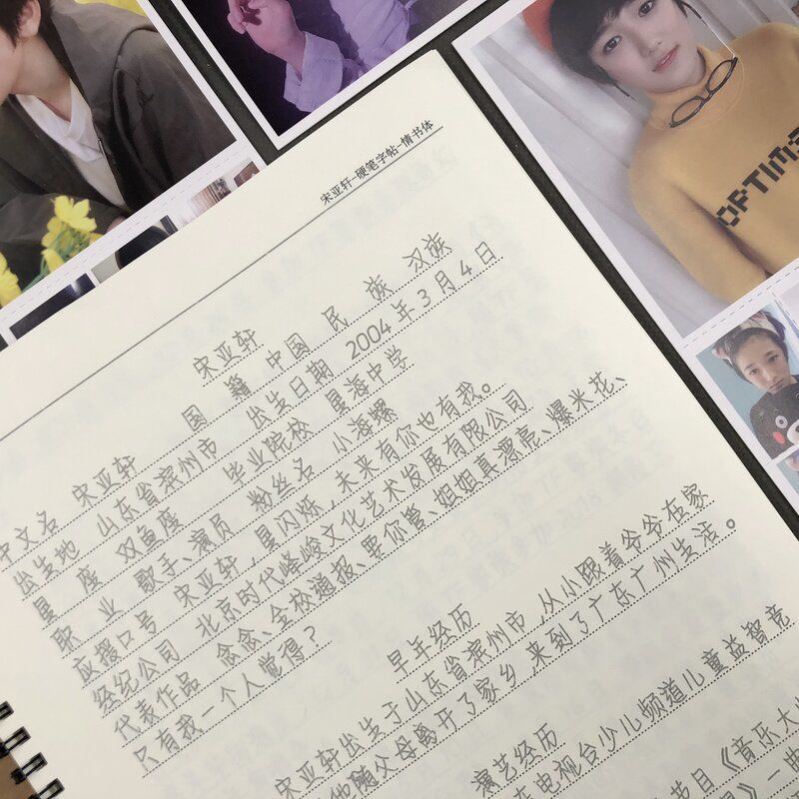 宋亚轩-硬笔字帖-情书体
宋亚轩
中文名 宋亚轩 国 籍 中国 民 族 汉族
出生地 山东省滨州市 出生日期 2004年3月4日
星 座 双鱼座 毕业院校 星海中学
职 业 歌手、演员 粉丝名 小海螺
应援口号 宋亚轩,星闪烁,未来有你也有我。
经纪公司 北京时代峰峻文化艺术发展有限公司
代表作品 念念、全校通报、要你管、姐姐真漂亮、爆米花、
只有我一个人觉得?
早年经历
宋亚轩出生于山东省滨州市,从小跟着爷爷在家
他随父母离开了家乡,来到了广东广州生活。
演艺经历
电视台少儿频道儿童益智竞
节目《音乐大
一曲
OPTIMIS